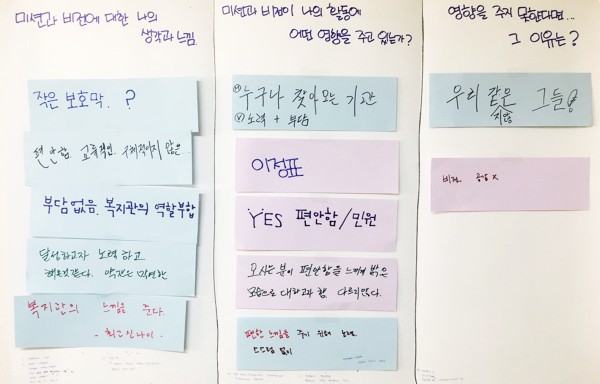 미션과 비전에 대한 나의
생각과 느낌.
작은 보호막. ?
편안함. 교육적인. 구체적이지 않은.
부담없음. 복지관의 역할부합
달성하고자 노력하고
약간은 막연한
복지관의 느낌을 준다.
- 최고신나이 -
미션과 비전이 나의 활동에
어떤 영향을 주고 있는가?
Ⓜ 누구나 찾아오는 기관
Ⓥ 노력 + 부담
이정표
YES 편안함/민원
오시는 분이 편안함을 느끼게 밝은
모습으로 대하고자 함. 다르지않다.
편안한 느낌을 주기 위해 노력.
영향을 주지 못한다면...
그 이유는?
우리 같은 그들
지향
비전. 공감 x